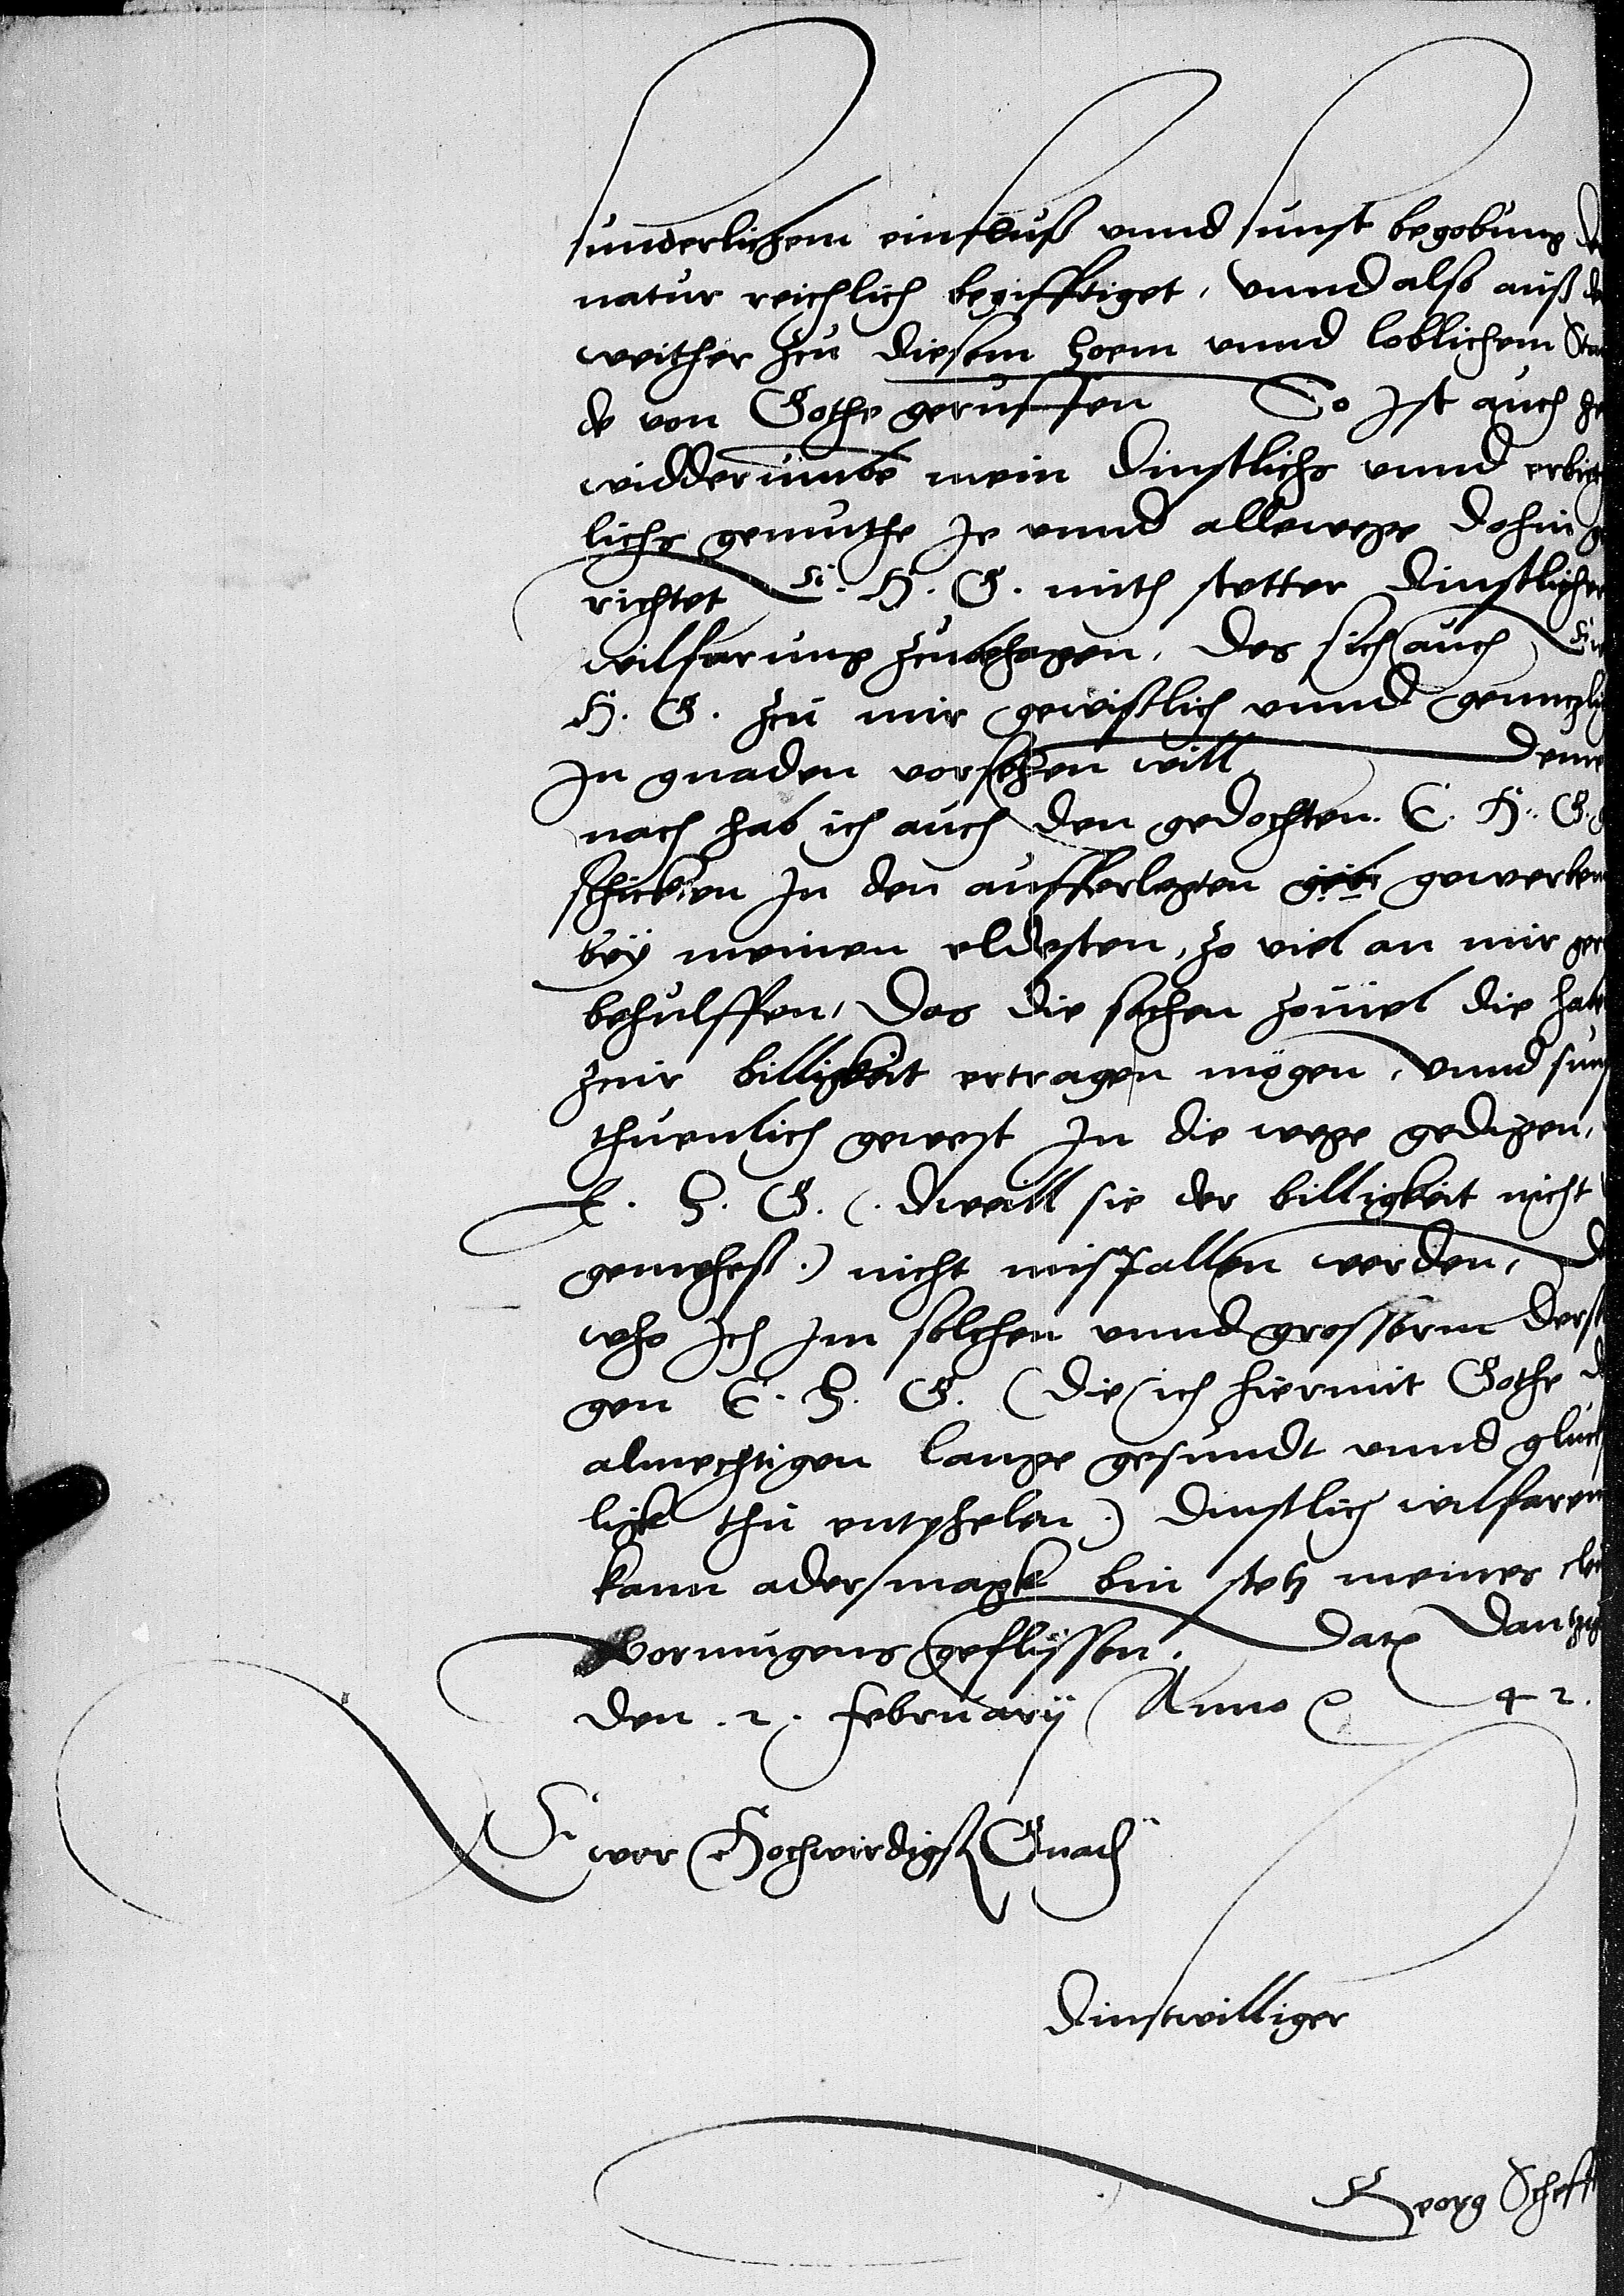 sunderlichem einfluß vnnd sunst begobung de
natur reichlich begifftiget, Vnnd also auß de
weither zcu diesem hoem vnnd loblichem Stan
de von Gothe geruffen So Jst auch he
widderumbe mein dinstlichs vnnd erbiet
lichs gemuthe Je vnnd allewege dohin ge
richtet E. H. G. mith stetter dinstlicher
wilfarung zcubehagen, des sich auch Ewr
H. G. zcu mir gewißlich vnnd gentzli
Jn gnaden vorsehen will Deme
nach hab ich auch den gedochten E. H. G. g
schickten Jn den aufferlegten gewerben
bey meinen eldesten, so viel an mir gew
behulffen, Das die sachen souiel die hab
zcur billigkeit ertragen mögen, Vnnd sun
thuenlich gewest Jn die wege gedigen,
E. H. G. (. dweill sie der billigkeit nicht
gemeheß .) nicht misfallen werden, D
who Jch Jm solchen vnnd grosserm derst
gen E. H. G. (die ich hiermit Gothe d
almechtigen lange gesundt vnnd gluck
ligk thu entphelen .) dinstlich wilfaren
kann ader magk bin stetz meines clei
Vormugens geflyssen. Dat Dantzig
den .2. february Anno 42.
Ewer Hochwirdigst Gnad
Dinstwilliger
Georg Scheff